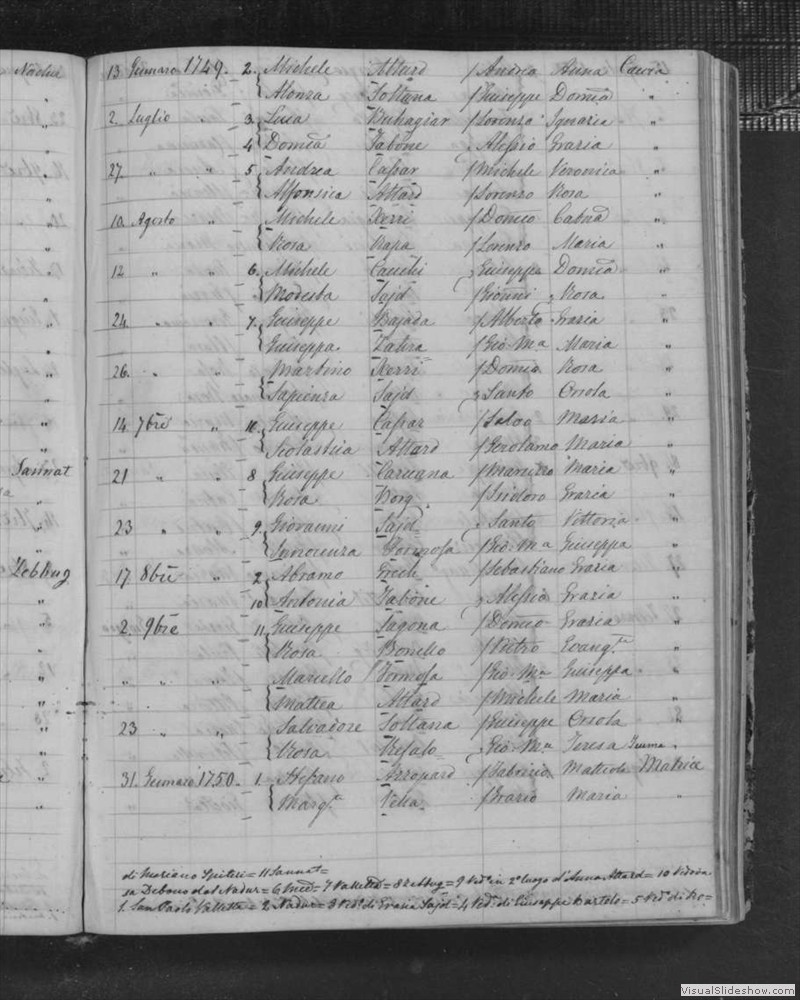 Nadur 13 Gennaro 1749. 2. Michele Attard f Andrea Anna Caccia
" { Alonza Soltana f Giuseppe Domca "
2. Luglio " 3 Luca Buhagiar f Lorenzo Ignazia "
4 Domca Tabone Alessio Grazia "
27. " " 5 Andrea Caspar f Michele Veronica "
{ Alfonsica Attard f Lorenzo Rosa "
10. Agosto " Michele Xerri f Domco "
{ Rosa Rapa f Lorenzo Maria "
12 " " 6. Michele Cauchi Giuseppe Domca "
Modesta Sajd f Gionni Rosa "
24. " " 7. Giuseppe Bajada f Alberto Grazia "
Giuseppa f Gio Ma Maria "
26. " Martino Xerri f Domco Rosa "
{ Sapienza Sajd Santo Orsola "
14. 7bre " 10. Giuseppe Caspar f Salvo Maria "
{ Scolastica Attard f Gerolamo Maria "
Sannat 21 " " 8 Giuseppe Caruana f Maria "
" { Rosa Borg f Isidoro Grazia "
23 " " 9. Giovanni Sajd Santo Vittoria "
" { Innocenza Formosa f Gio Ma Giuseppa "
Zebbug 17. 8bre " 2. Abramo Grech f Sebastiano Grazia "
" 10 { Antonia Tabone Alessio Grazia "
2. 9bre " 11. Giuseppe Sagona f Domco Grazia "
" { Rosa Bonello f Pietro Evangta "
" " " " Marcello Formosa f Gio Ma Giuseppa "
" { Mattea Attard f Michele Maria "
23 " " Salvadore Soltana f Giuseppe Orsola "
" { Rosa Refalo Gio Ma Teresa "
" 31. Gennaro 1750. 1. Stefano f Fabrizio Matrice
" { Margta Vella f Grazio Maria "
di Mariano Spiteri = 11 Sannat =
sa Debono dal Nadur = 6 = 7 Valletta = 8 Zebbug = 9 Veda in 2o luogo d'Anna Attard = 10 Vedova
1. San Paolo Valletta = 2 Nadur = 3 Veda di Grazia Sajd = 4 Veda di Giuseppe Bartolo = 5 Veda di Ro=
VisualSlideshow.com